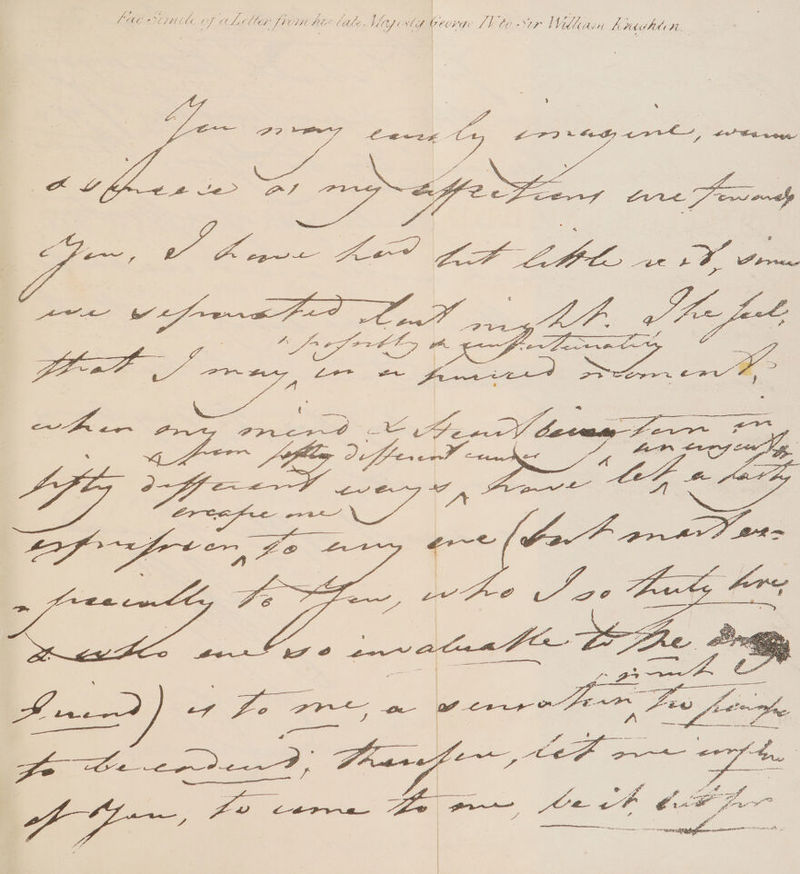 Fac Simile of a Letter from his late Majesty George IV to Sir William Knighton.
You may easily imagine, warm
& sincere as my affections are towards
You, I have had but little rest, since
we separated last night. The feel,
possibly & unfortunately
that I may in a hurried moment,
when my mind & Heart being torn in
& from fifty different causes an unjust or
fifty different ways, have let a hasty
escape me
expression to any one (but most es=
=pecially to You, who I so truly love,
& who are so invaluable to me as
Friend) is to me, a sensation much too painful
to be endured; therefore, let me implore
of You, to come to me, be it but for